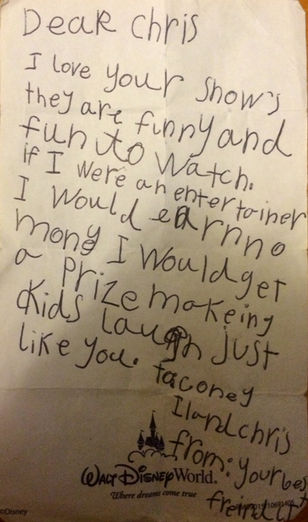 Dear Chris
I love your show's
they are finny and
fun to watch.
if I were an entertainer
I would earn no
mony I would get
a prize makeing
kids laugh just
like you. taconey
Iland chris
from: your bes
freind
WALT DISNEY World.
Where dreams come true
©Disney